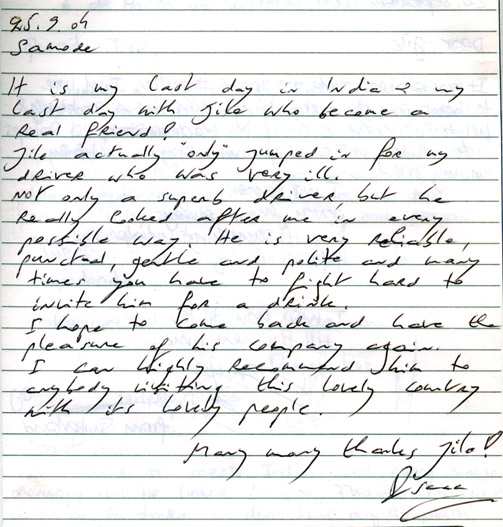 25.9.04
Samode
It is my last day in India & my
last day with Jile who became a
real friend!
Jile actually "only" jumped in for my
driver who was very ill.
Not only a superb driver, but he
really looked after me in every
possible way. He is very reliable,
punctual, gentle and polite and many
times you have to fight hard to
invite him for a drink.
I hope to come back and have the
pleasure of his company again.
I can highly recommend him to
anybody visiting this lovely country
with its lovely people.
Many many thanks Jile!